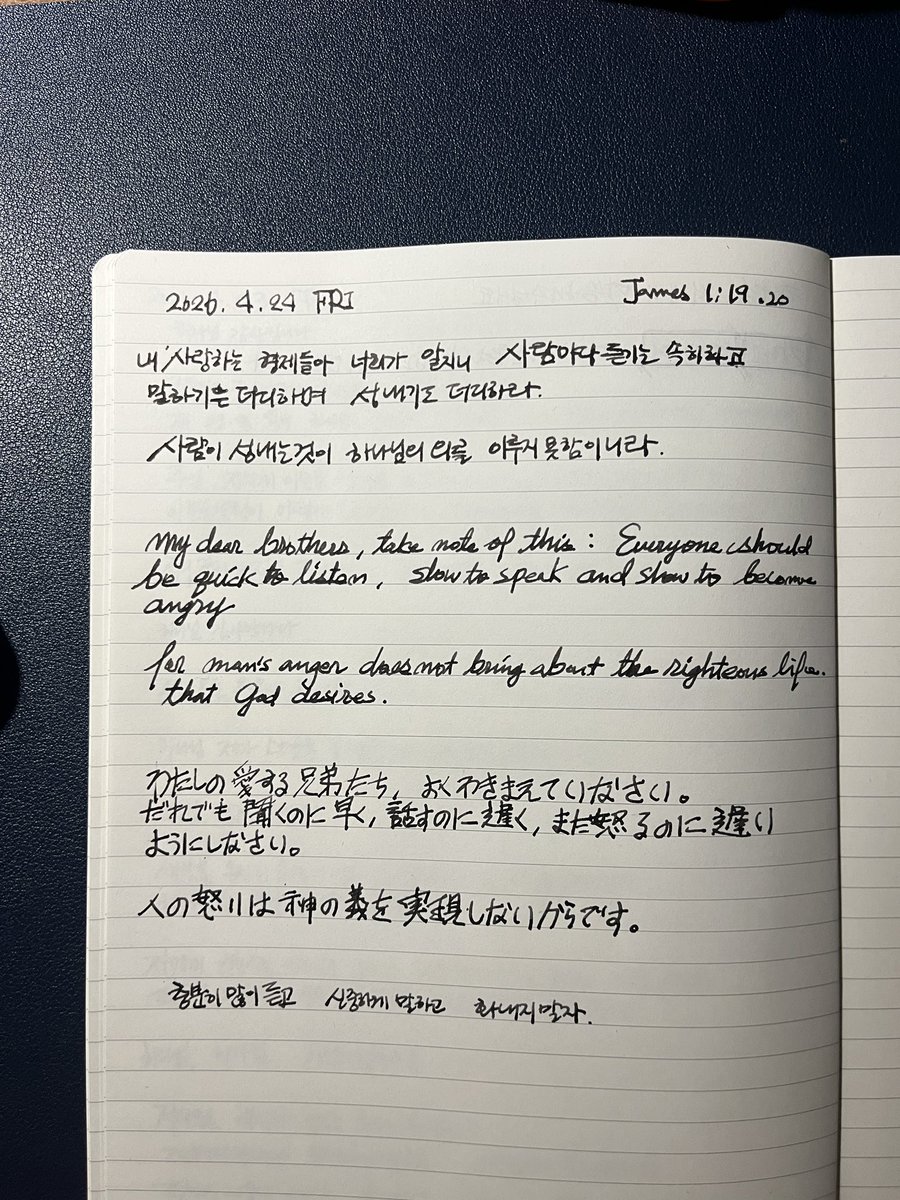 2026. 4. 24 FRI
James 1:19.20
내 사랑하는 형제들아 너희가 알지니 사람마다 듣기는 속히하고
말하기는 더디하며 성내기도 더디하라.
사람이 성내는것이 하나님의 의를 이루지 못함이니라.
My dear brothers, take note of this : Everyone should
be quick to listen, slow to speak and slow to become
angry
for man's anger does not bring about the righteous life.
that God desires.
わたしの愛する兄弟たち, よくわきまえていなさい。
だれでも聞くのに早く, 話すのに遅く, また怒るのに遅い
ようにしなさい。
人の怒りは神の義を実現しないからです。
충분히 많이 듣고 신중하게 말하고 화내지말자.